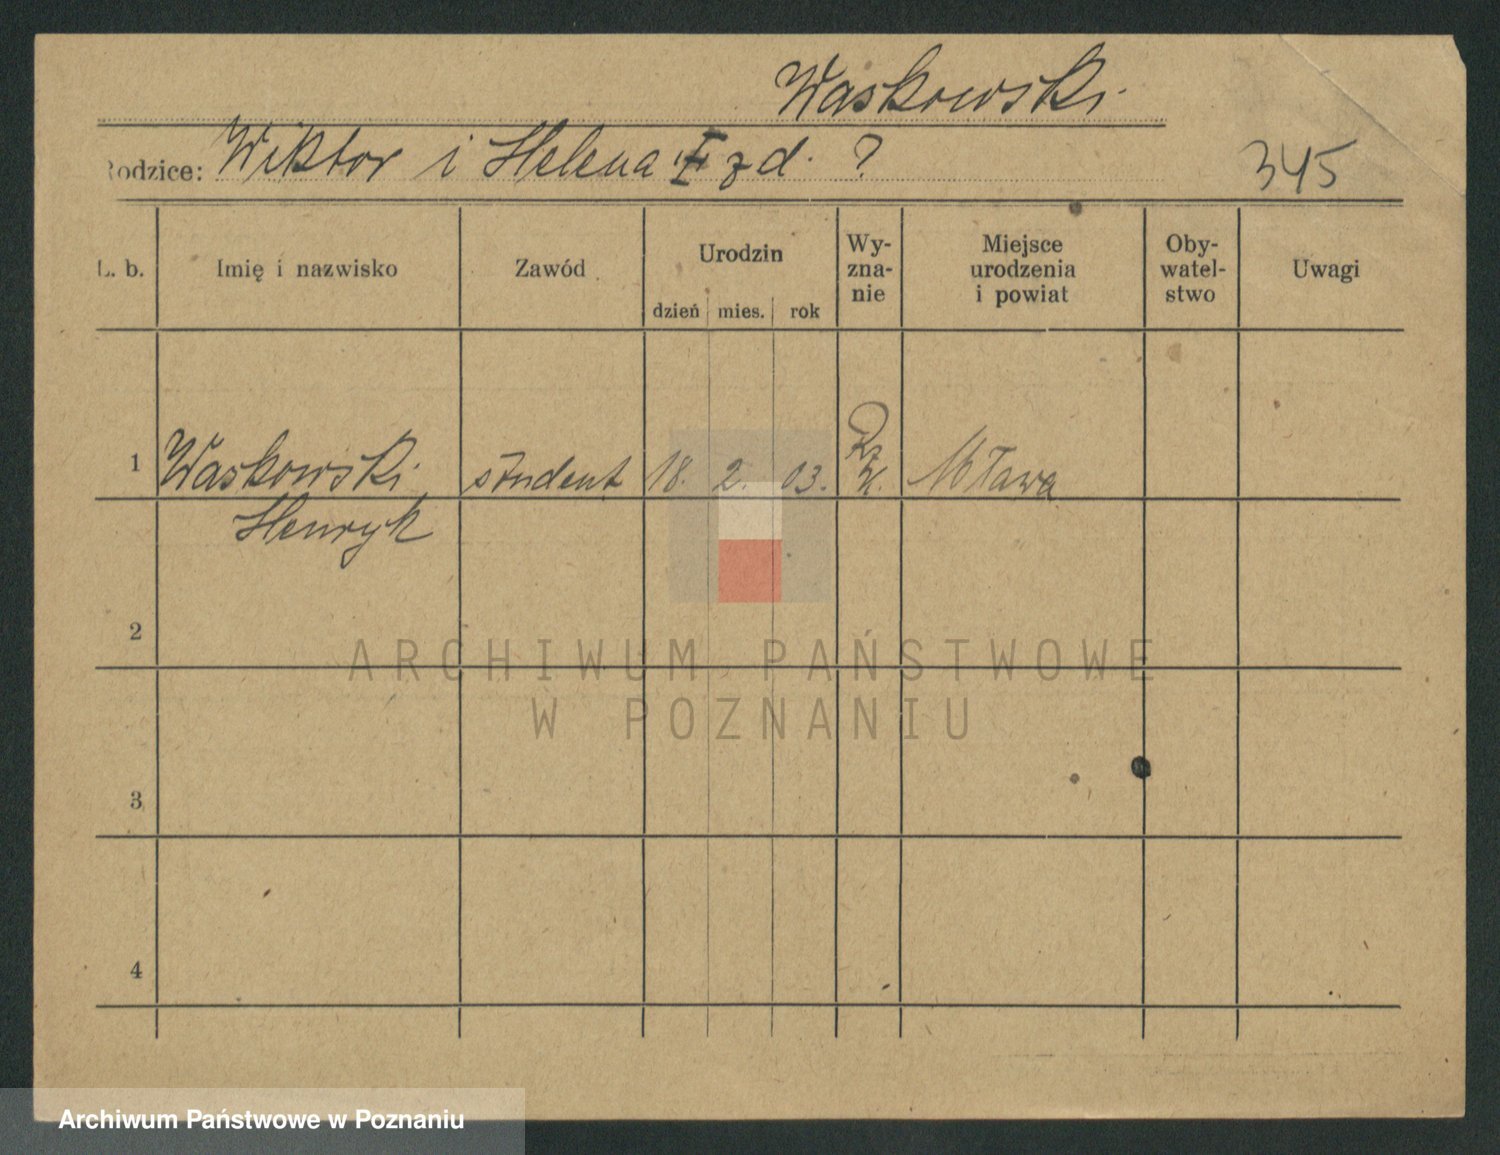 Waskowski
Rodzice: Wiktor i Helena z d. ?
345
L. b. Imię i nazwisko Zawód Urodzin Wy-zna-nie Miejsce urodzenia i powiat Oby-watel-stwo Uwagi
dzień mies. rok
1 Waskowski student 18. 2. 03. Rz K. Mława
Henryk
2
ARCHIWUM PAŃSTWOWE
W POZNANIU
3
4
Archiwum Państwowe w Poznaniu